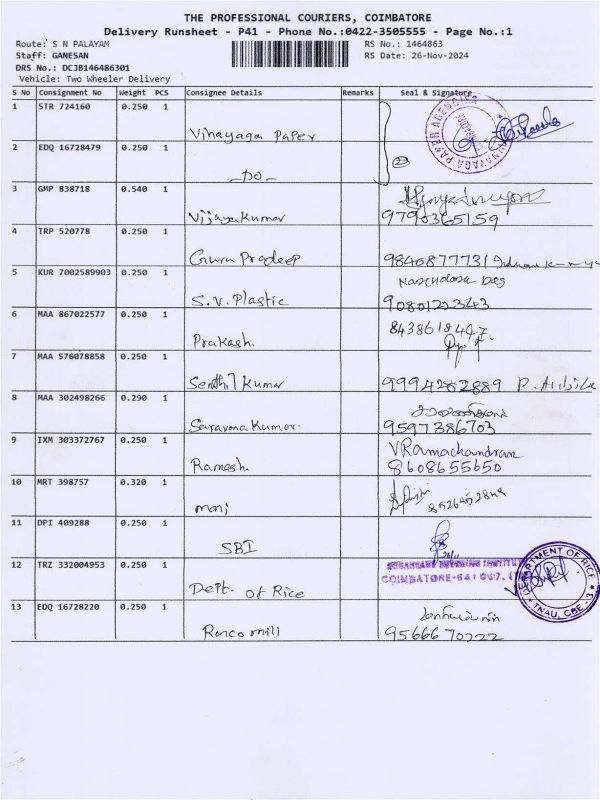 THE PROFESSIONAL COURIERS, COIMBATORE
Delivery Runsheet - P41 - Phone No.:0422-3505555 - Page No.:1
Route: S N PALAYAM RS No.: 1464863
Staff: GANESAN RS Date: 26-Nov-2024
DRS No.: DCJB146486301
Vehicle: Two Wheeler Delivery
S No Consignment No Weight PCS Consignee Details Remarks Seal & Signature
1 STR 724160 0.250 1 Vinayaga Paper
VINAYAGA PAPER AGENCIES
2 EDQ 16728479 0.250 1 -Do-
3 GMP 838718 0.540 1 Vijayakumar 9790365159
4 TRP 520778 0.250 1 Guru Pradeep 9840877731
5 KUR 7002589903 0.250 1 S.V. Plastic 9080122343
6 MAA 867022577 0.250 1 Prakash.
7 MAA 576078858 0.250 1 Senthil Kumar 9994282889
8 MAA 302498266 0.290 1 Saravana Kumar. 9597386703
9 IXM 303372767 0.250 1 Ramesh. V Ramachandran
8608655650
10 MRT 398757 0.320 1 mani
11 DPI 409288 0.250 1 SBI
12 TRZ 332004953 0.250 1 Dept. of Rice
COIMBATORE-641 007.
DEPARTMENT OF RICE
TNAU, CBE - 3
13 EDQ 16728220 0.250 1 Ronco mill 9566670222